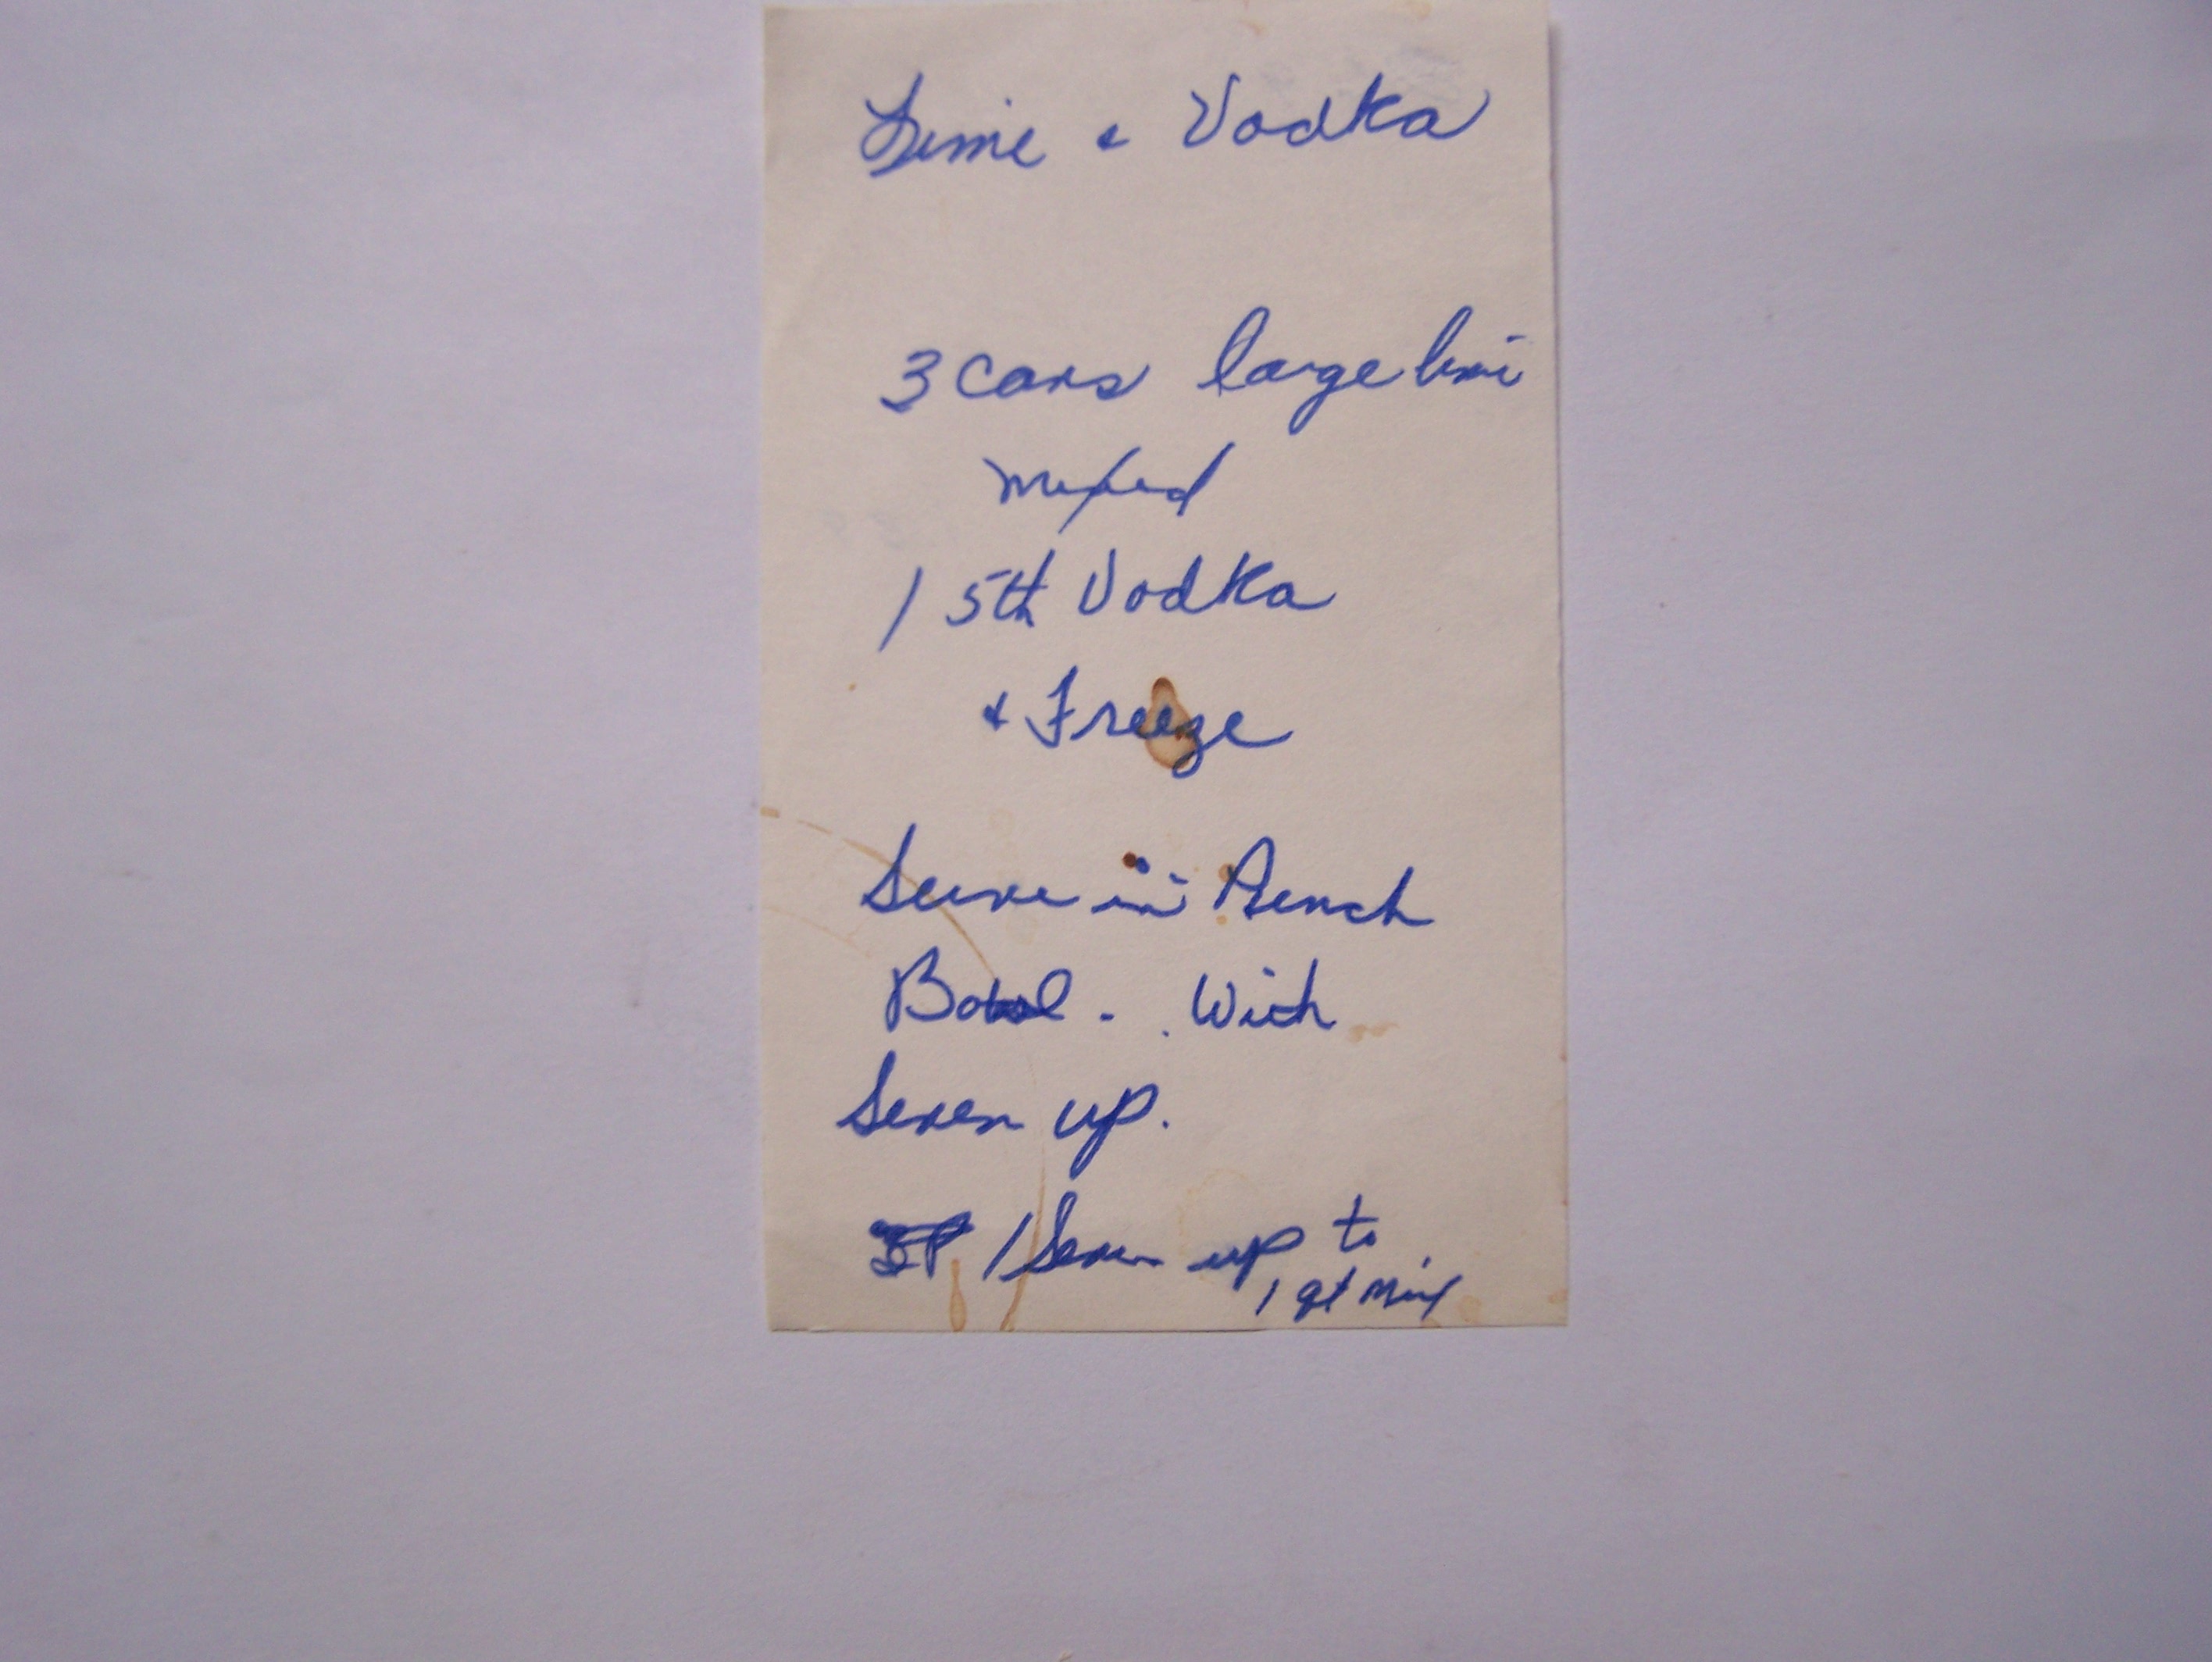 Lime & Vodka
3 cans large lime
mixed
1 5th Vodka
& Freeze
Serve in Punch
Bowl - . With
Seven up.
1 Seven up to
1 qt mix